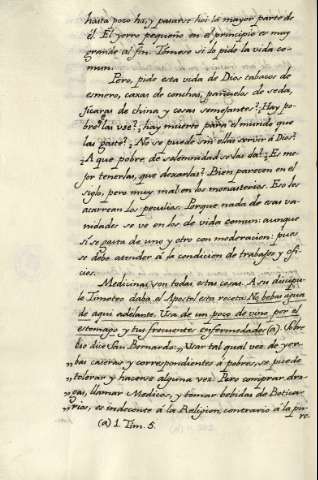 hasta poco ha, y pasarse hoi la mayor parte de
él. El yerro pequeño en el principio es muy
grande al fin. Tomese si lo pide la vida co-
mun.
Pero, pide esta vida de Dios tabacos de
esmero, caxas de conchas, pañuelos de seda,
jicaras de china y cosas semejantes? Hay po-
bre q.e las use? ¿hay muerto para el mundo que
las gaste? ¿No se puede sin ellas servir á Dios?
¿A que pobre de solemnidad se las da? ¿Es me-
jor tenerlas, que dexarlas? Bien parecen en el
siglo, pero muy mal en los monasterios. Eso les
acarrean los peculios. Porque nada de esas va-
nidades se ve en los de vida comun: aunque
sí se gasta de uno y otro con moderacion: pues
se debe atender á la condicion de trabajos y ofi-
cios.
Medicinas son todas estas cosas. A su discipu-
lo Timoteo daba el Apostol esta receta: No bebas agua
de aqui adelante. Usa de un poco de vino por el
estomago y tus frecuentes enfermedades (a). Sobre
lo dice San Bernardo: „Usar tal qual vez de yer-
„bas caseras y correspondientes á pobres, se puede
„tolerar y hacerse alguna vez. Pero comprar dro-
„gas, llamar Medicos, y tomar bebidas de Botica-
„rios, es indecente á la Religion, contrario á la pu-
re.
(a) 1. Tim. 5.